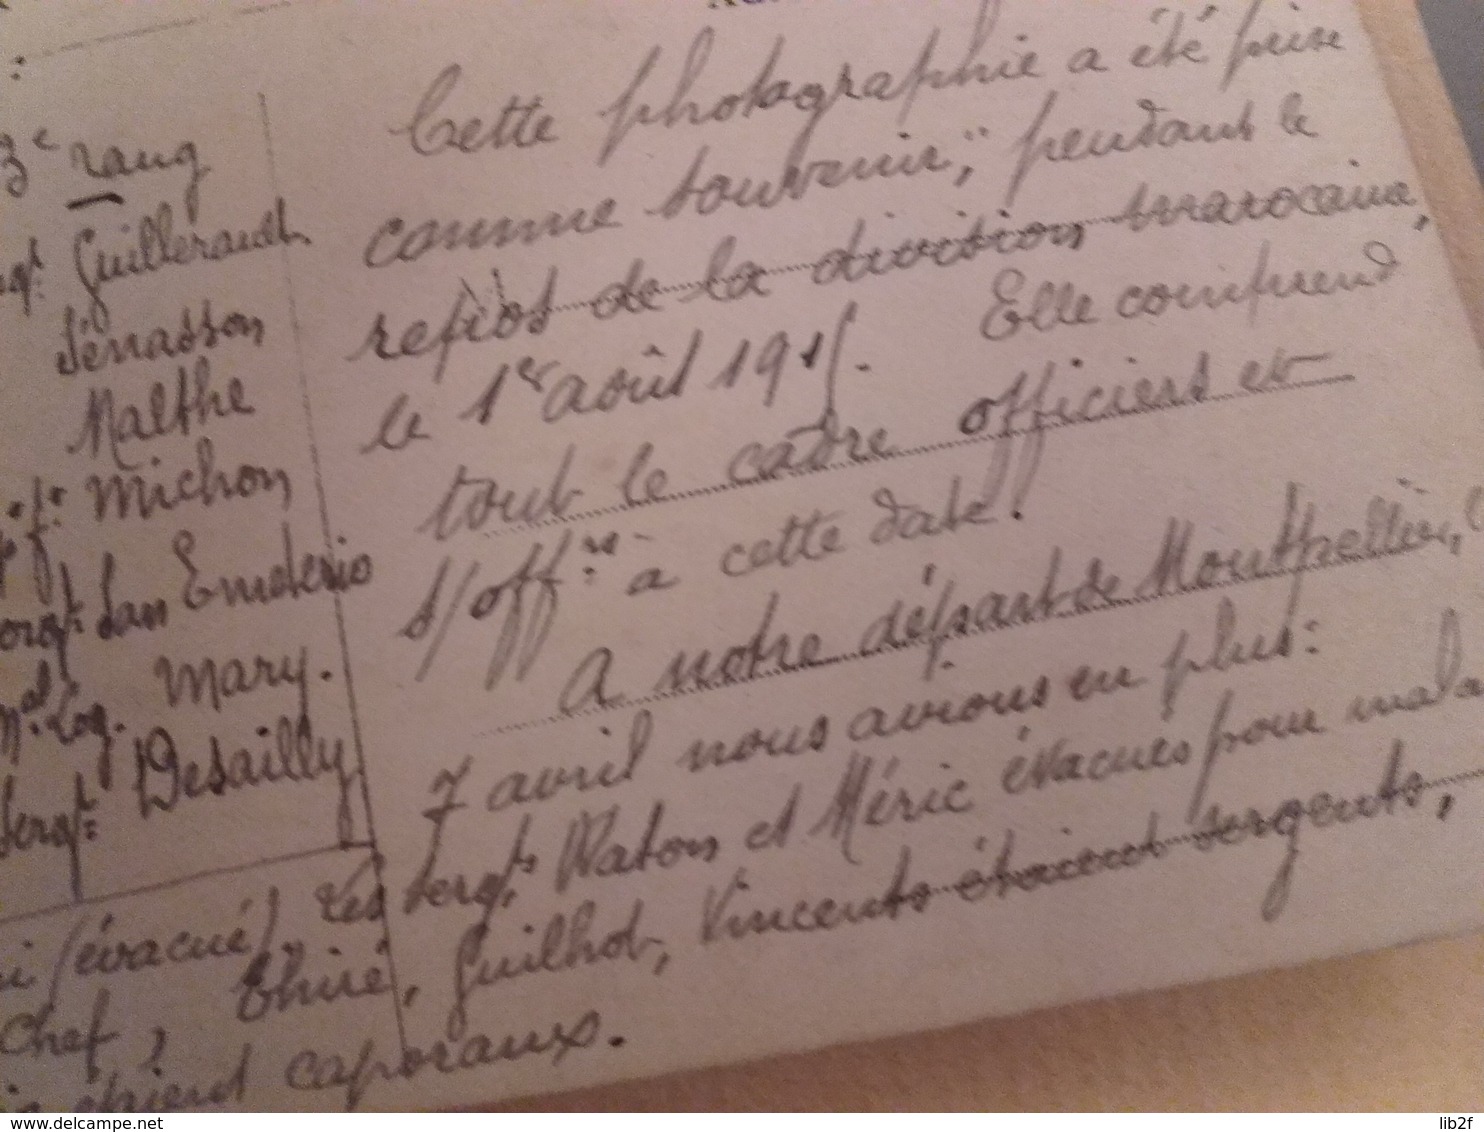 3e rang
Guilleraudt
Sénasson
Malthe
Michon
San Emeterio
Mal. Log. Mary.
Sergt: Desailly
Cette photographie a été prise
comme souvenir", pendant le
repos de la division marocaine,
le 1er août 1915. Elle comprend
tout le cadre officiers et
s/offers à cette date.
A notre départ de Montpellier,
7 avril nous avions en plus:
(évacué), Les sergts Waton et Méric évacués pour
chef, Thiré, Guilhot, Vincents étaient sergents,
étaient caporaux.
https://www.delcampe.net
lib2f